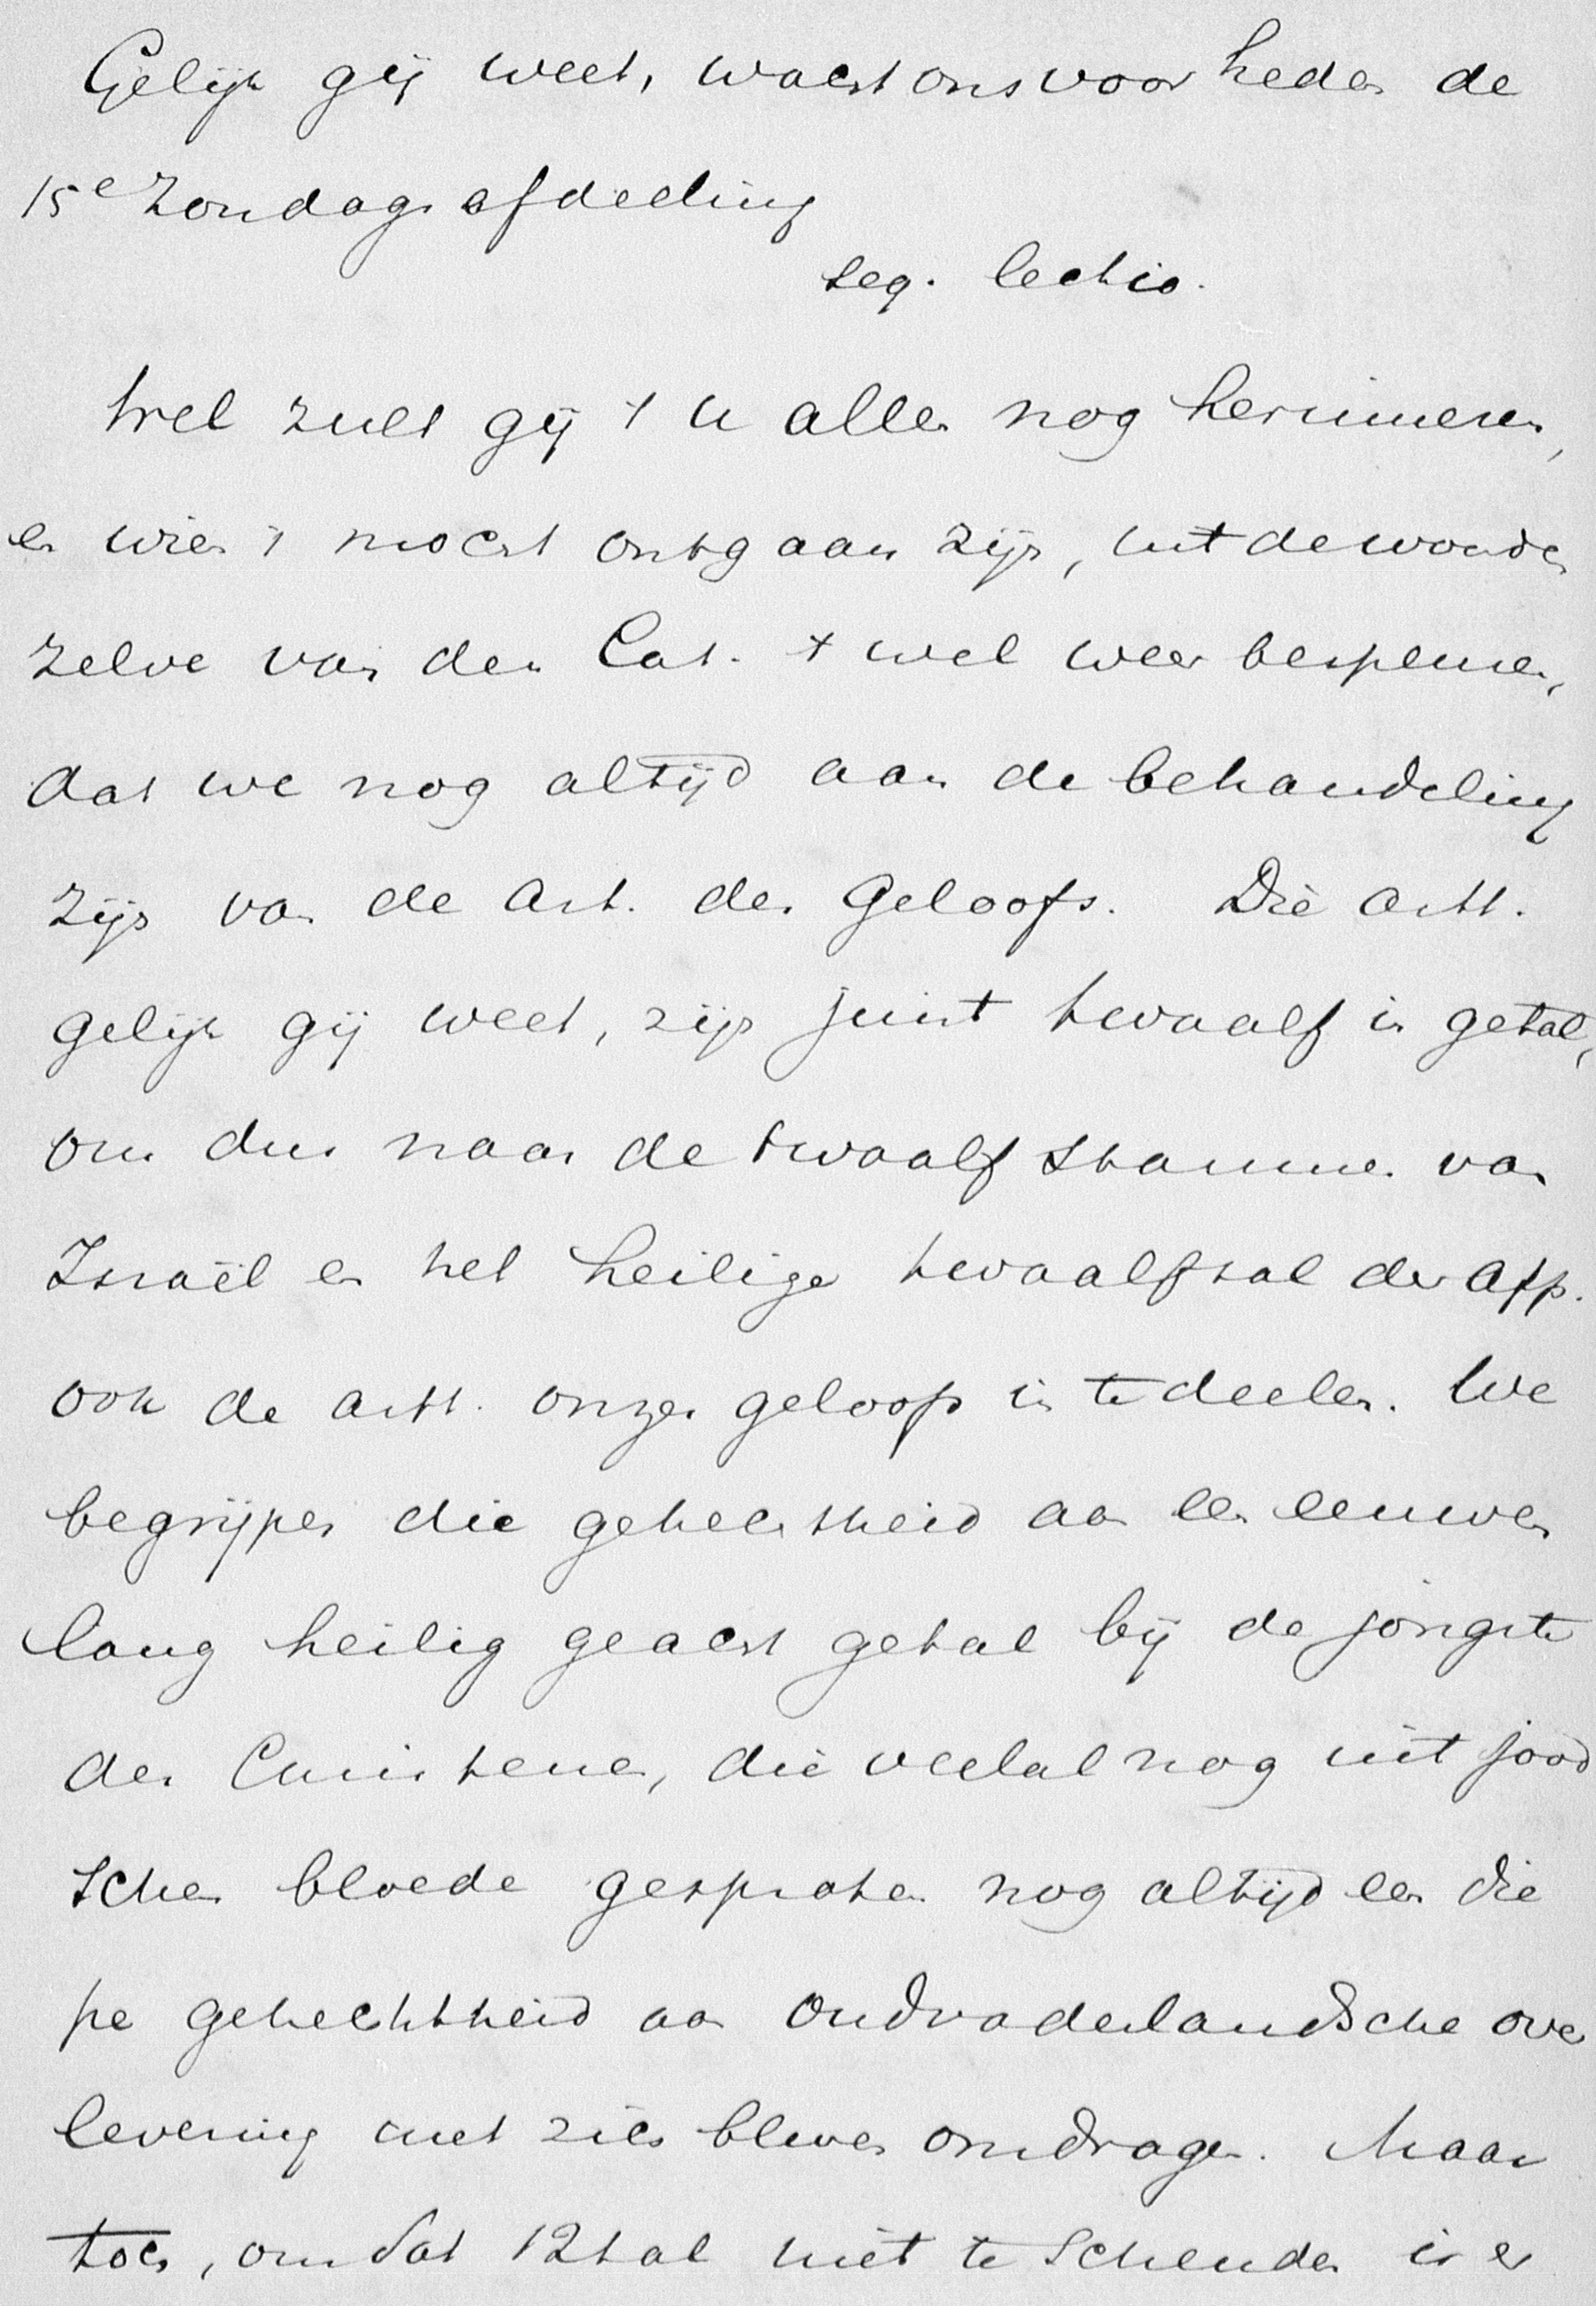 Gelijk gij weet, wacht ons voor heden de
15e Zondagsafdeeling
seq. lectio.
Wel zult gij 't u allen nog herinneren,
en wien 't mocht ontgaan zijn, uit de woorden
zelve van den Cat. 't wel weer bespeuren,
dat we nog altijd aan de behandeling
zijn van de Art. des Geloofs. Die Artt.
gelijk gij weet, zijn juist twaalf in getal,
om dus naar de twaalf stammen van
Israël en het heilige twaalftal der App.
ook de artt. onzes geloofs in te deelen. We
begrijpen die gehechtheid aan een eeuwen
lang heilig geacht getal bij de jongste
der Christenen, die veelal nog uit jood
schen bloede gesproten nog altijd een die
pe gehechtheid aan oudvaderlandsche over
levering met zich bleven omdragen. Maar
toch, om dat 12tal niet te schenden is er